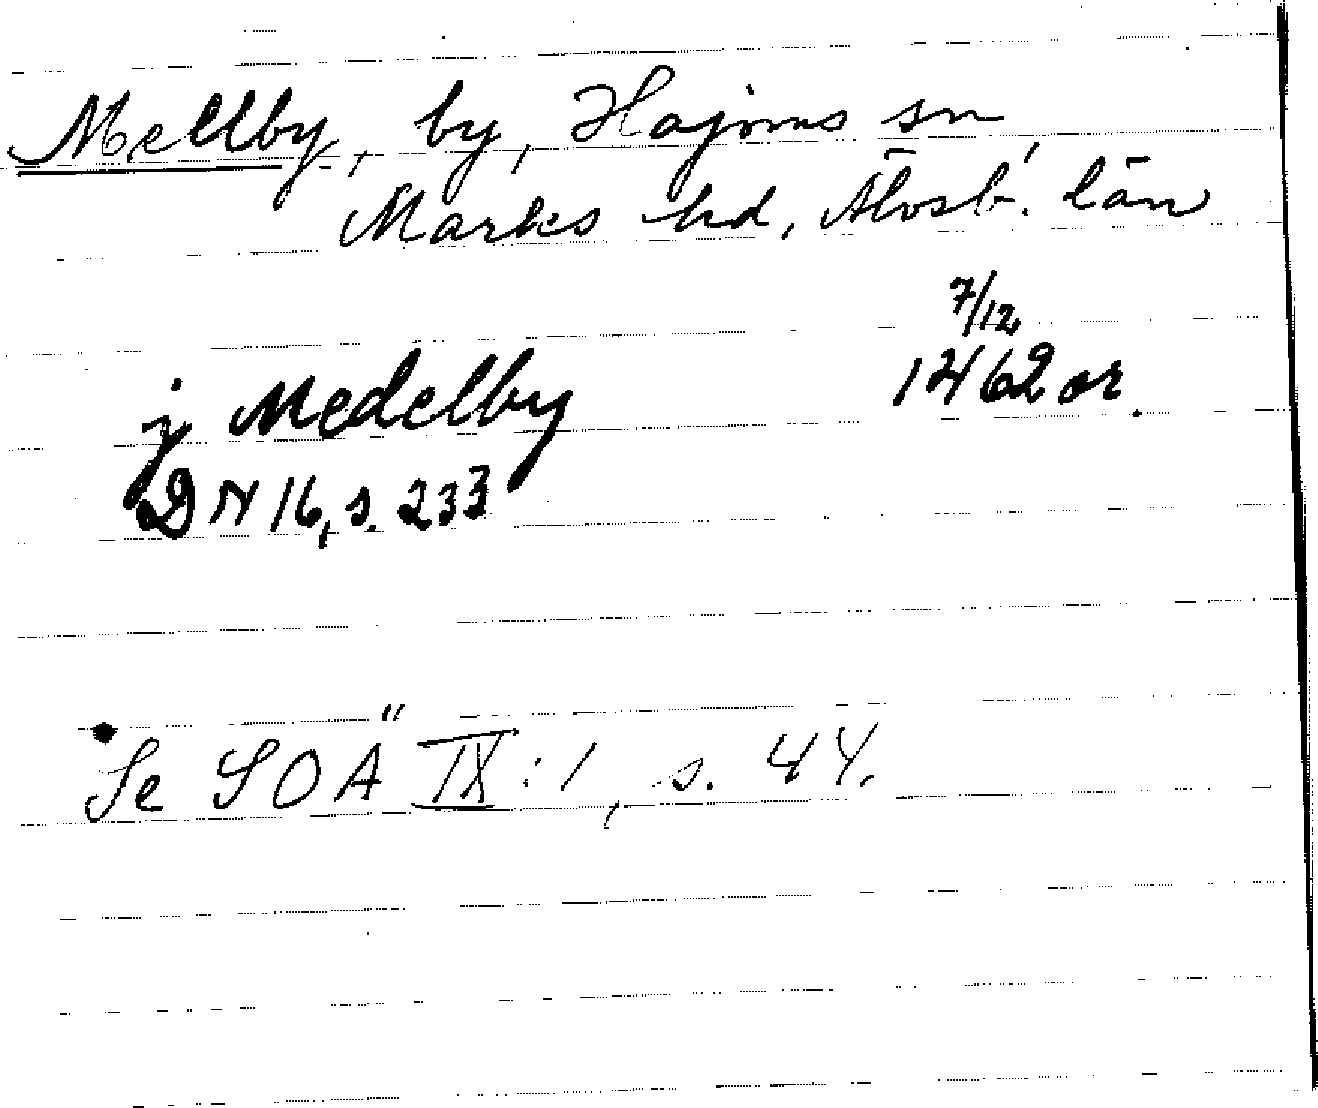 Mellby, by, Hajoms sn,
Marks hd, Älvsb. län
7/12
j Medelby 1462 or.
DN 16, s. 233
Se SOÄ IX:1, s. 44.